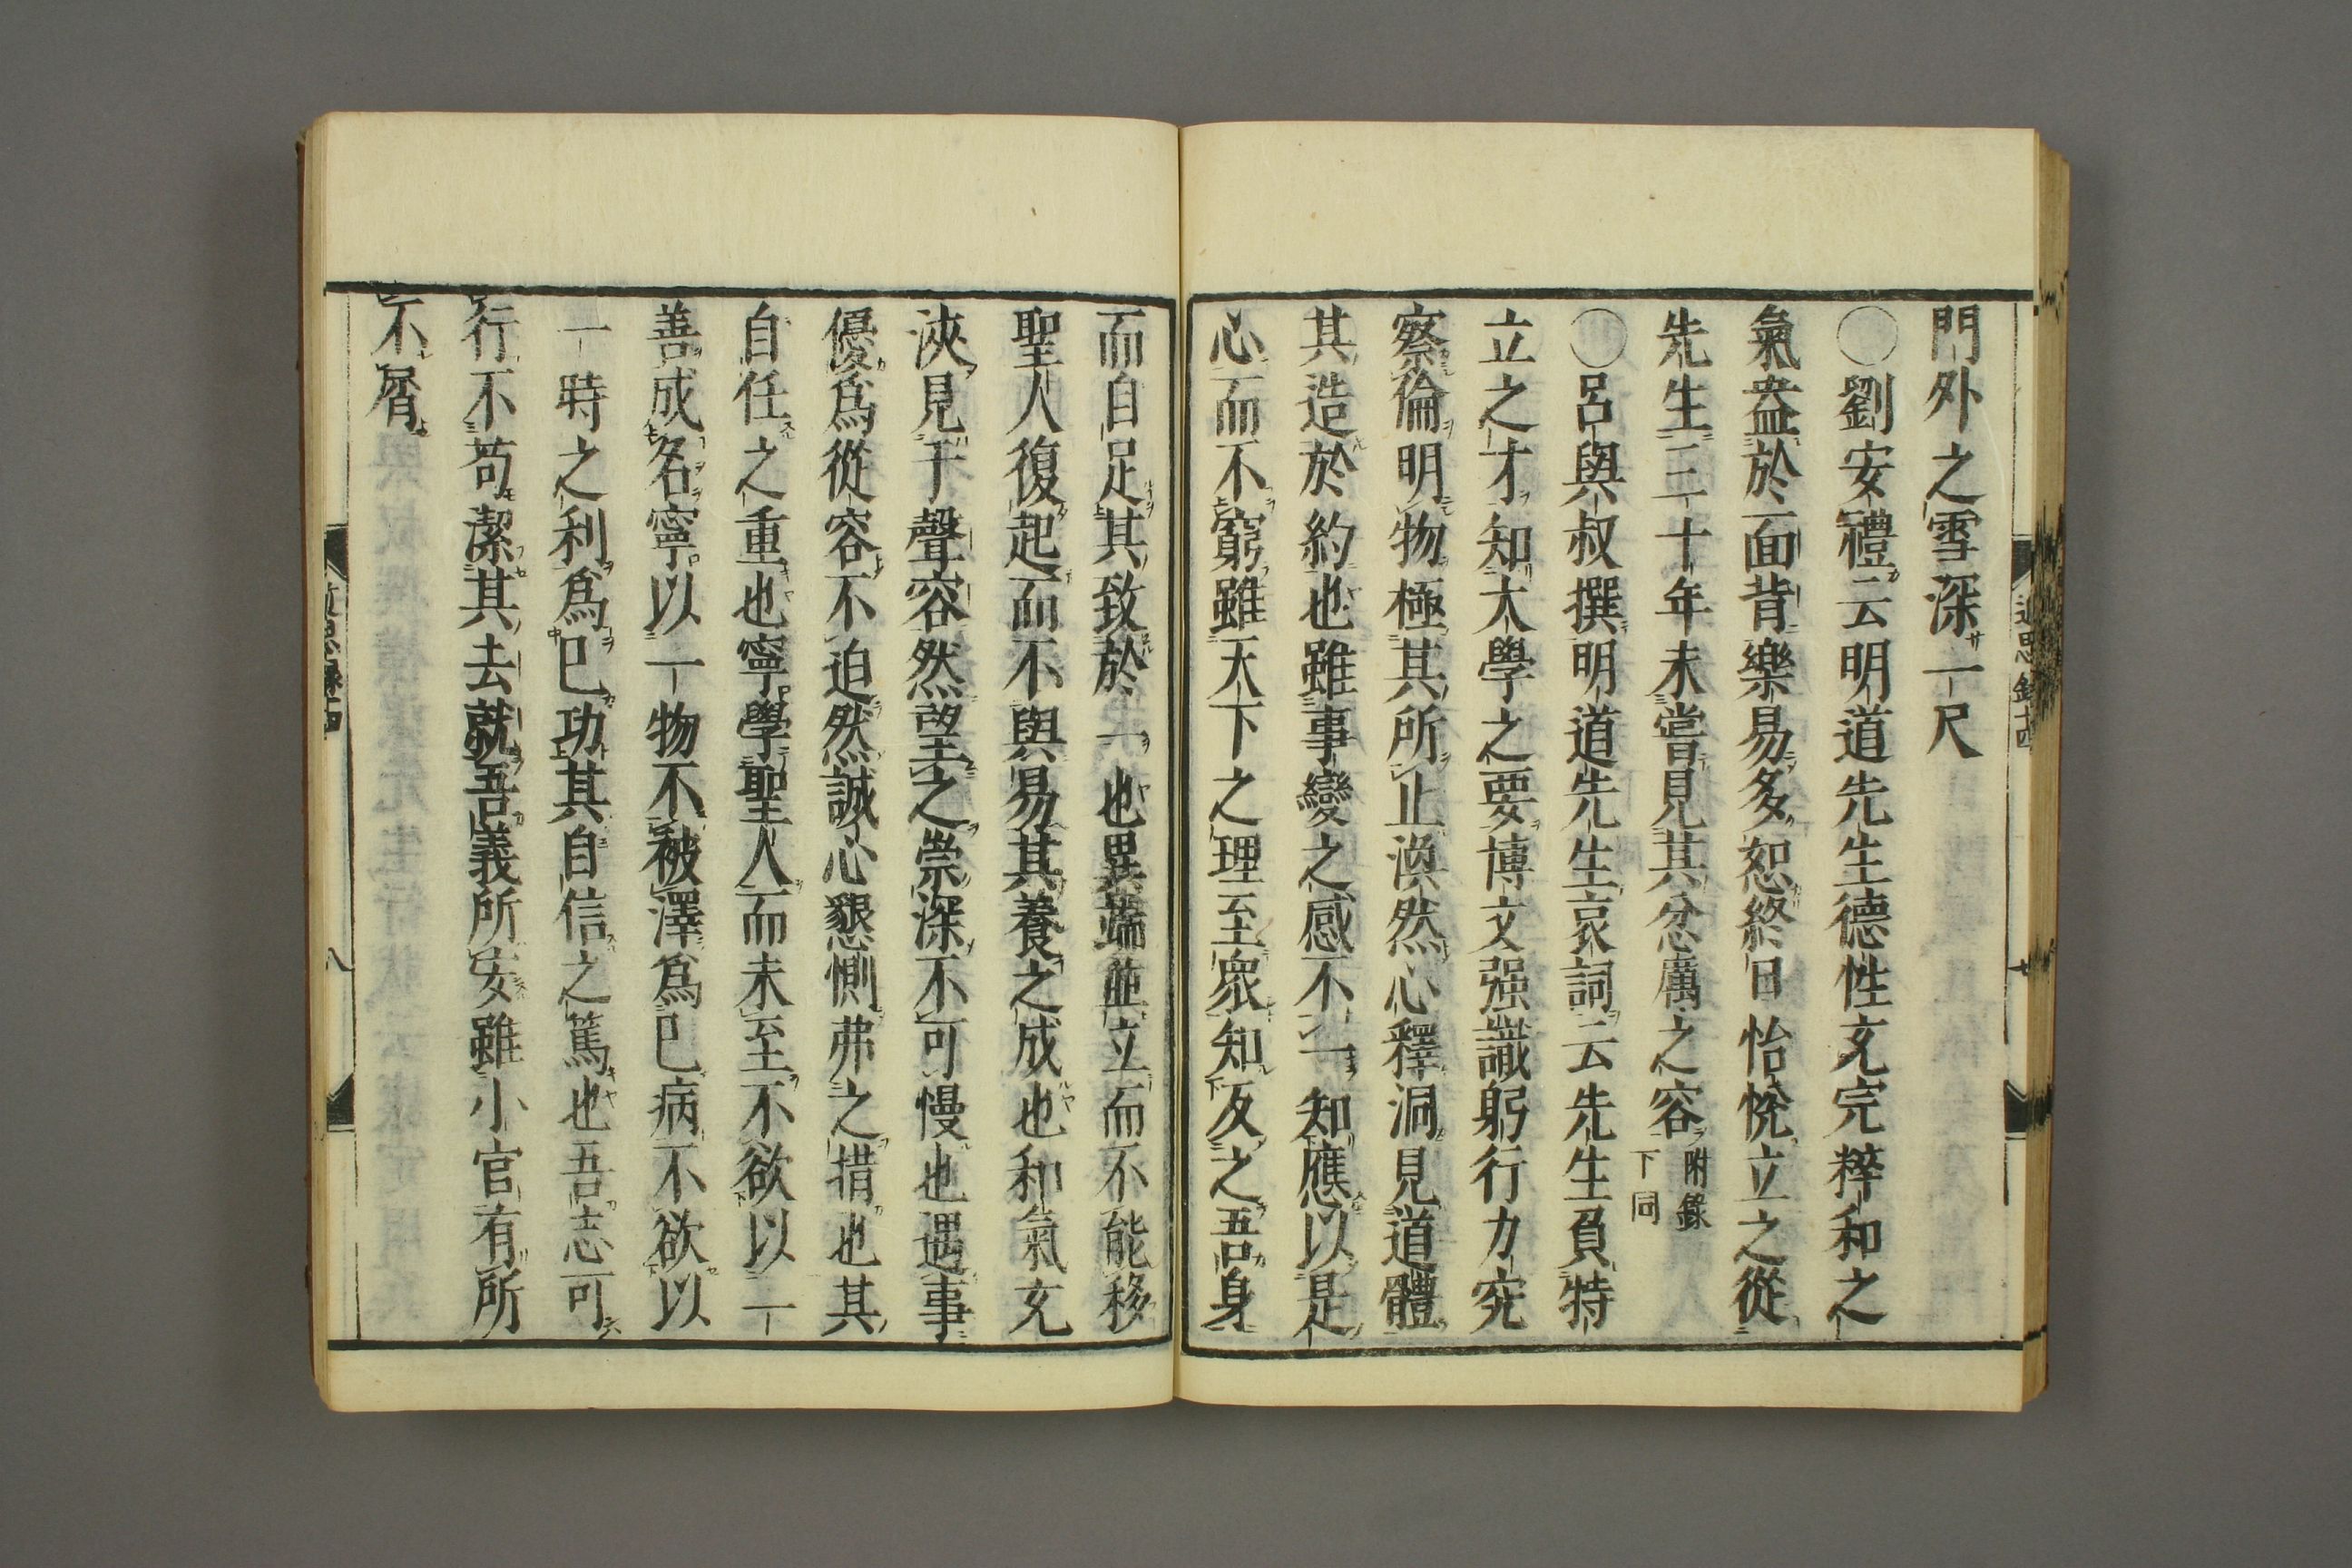 門外之雪深一尺
○劉安禮云明道先生德性充完粹和之
氣盎於面背樂易多恕終日怡悅立之從
先生三十年未嘗見其忿厲之容附錄
下同
○呂與叔撰明道先生哀詞云先生負特
立之才知大學之要博文强識躬行力究
察倫明物極其所止渙然心釋洞見道體
其造於約也雖事變之感不一知應以是
心而不窮雖天下之理至衆知反之吾身
而自足其致於一也異端並立而不能移
聖人復起而不與易其養之成也和氣充
浹見于聲容然望之崇深不可慢也遇事
優爲從容不迫然誠心懇惻弗之措也其
自任之重也寧學聖人而未至不欲以一
善成名寧以一物不被澤爲己病不欲以
一時之利爲己功其自信之篤也吾志可
行不苟潔其去就吾義所安雖小官有所
不屑
近思錄十四
八